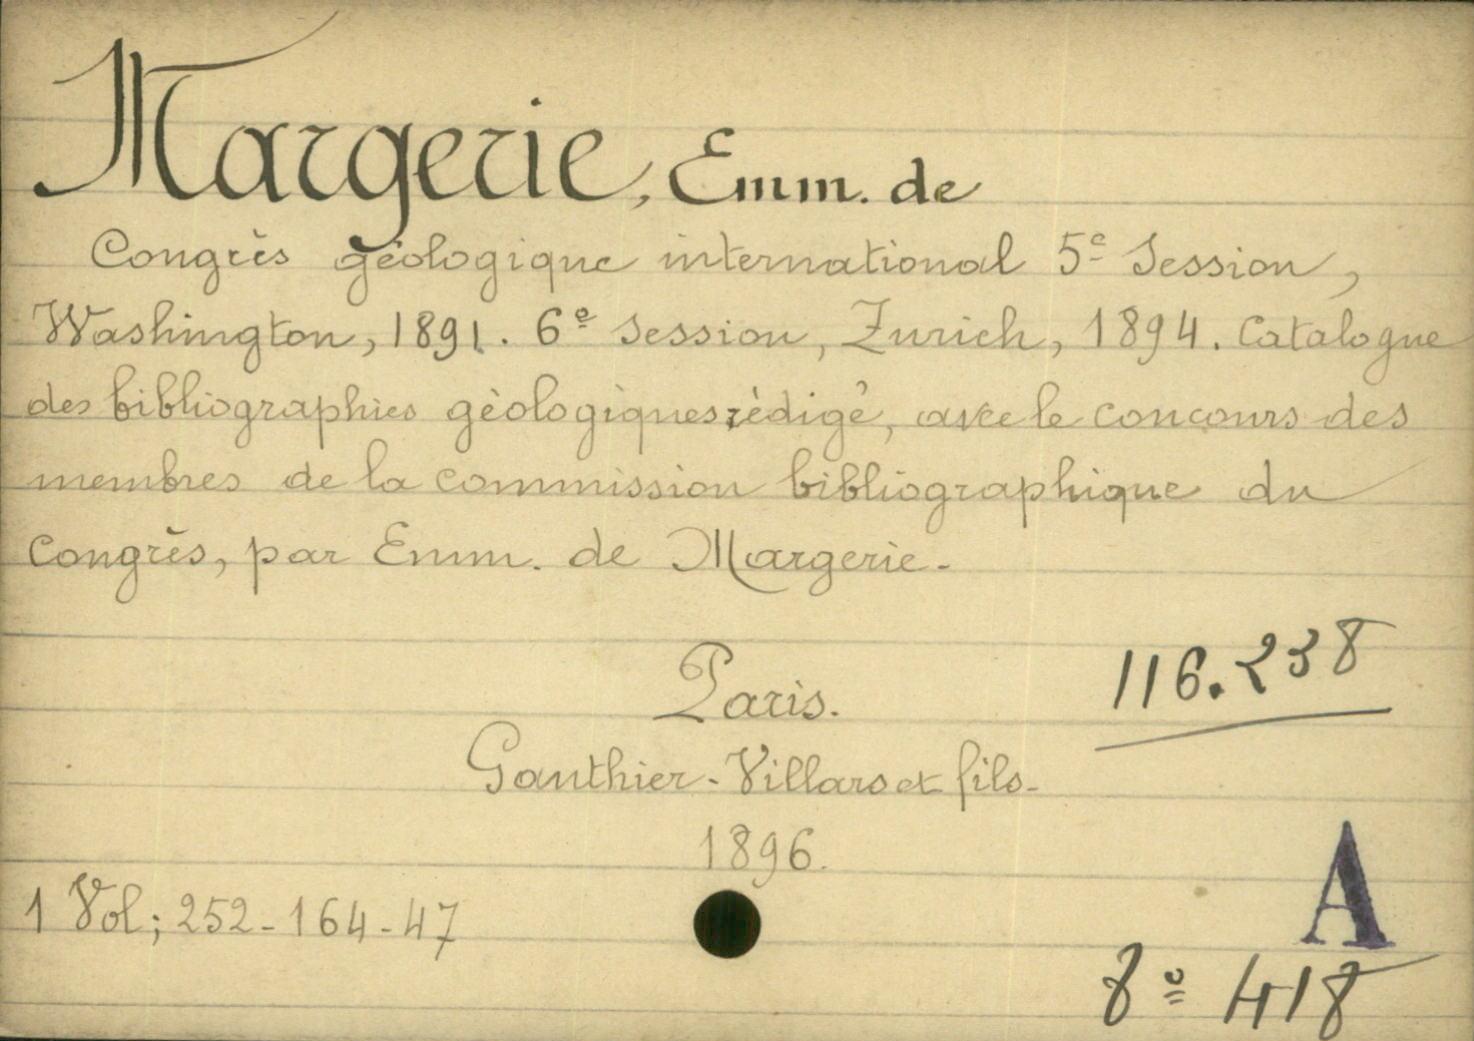 Margerie, Emm. de
Congrès géologique international 5e Session,
Washington, 1891. 6e Session, Zurich, 1894. Catalogue
des bibliographies gèologiques, rèdigé, avec le concours des
membres de la commission bibliographique du
Congrès, par Emm. de Margerie.
116.238
Paris.
Gauthier-Villars et fils.
1896.
A
1 Vol; 252-164-47
8e 418